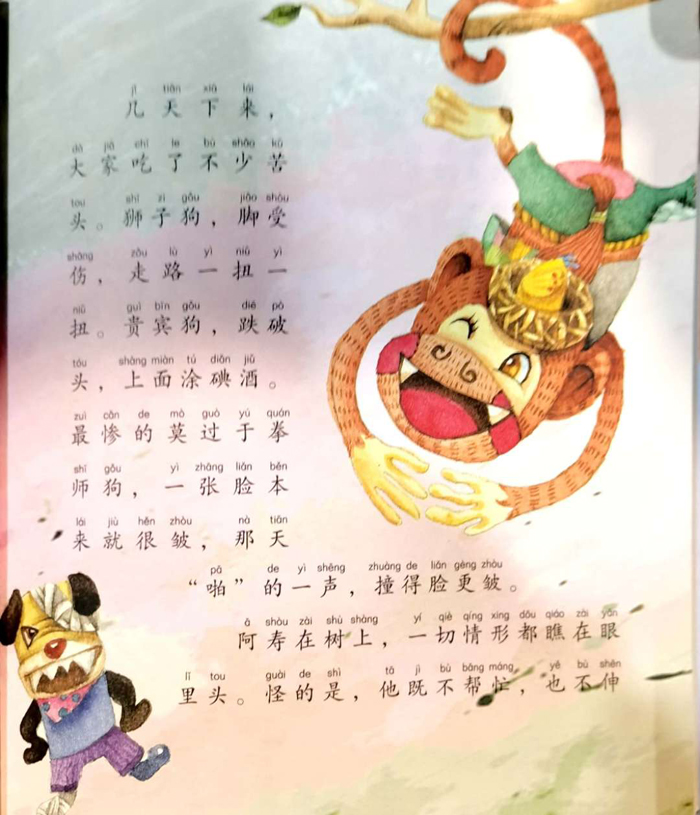 jǐ tiān xià lái
几天下来，
dà jiā chī le bù shǎo kǔ
大家吃了不少苦
tou shī zi gǒu jiǎo shòu
头。狮子狗，脚受
shāng zǒu lù yì niǔ yì
伤，走路一扭一
niǔ guì bīn gǒu diē pò
扭。贵宾狗，跌破
tóu shàng miàn tú diǎn jiǔ
头，上面涂碘酒。
zuì cǎn de mò guò yú quán
最惨的莫过于拳
shī gǒu yì zhāng liǎn běn
师狗，一张脸本
lái jiù hěn zhòu nà tiān
来就很皱，那天
pā de yì shēng zhuàng de liǎn gèng zhòu
“啪”的一声，撞得脸更皱。
ā shòu zài shù shàng yí qiè qíng xing dōu qiáo zài yǎn
阿寿在树上，一切情形都瞧在眼
lǐ tou guài de shì tā jì bù bāng máng yě bù shēn
里头。怪的是，他既不帮忙，也不伸